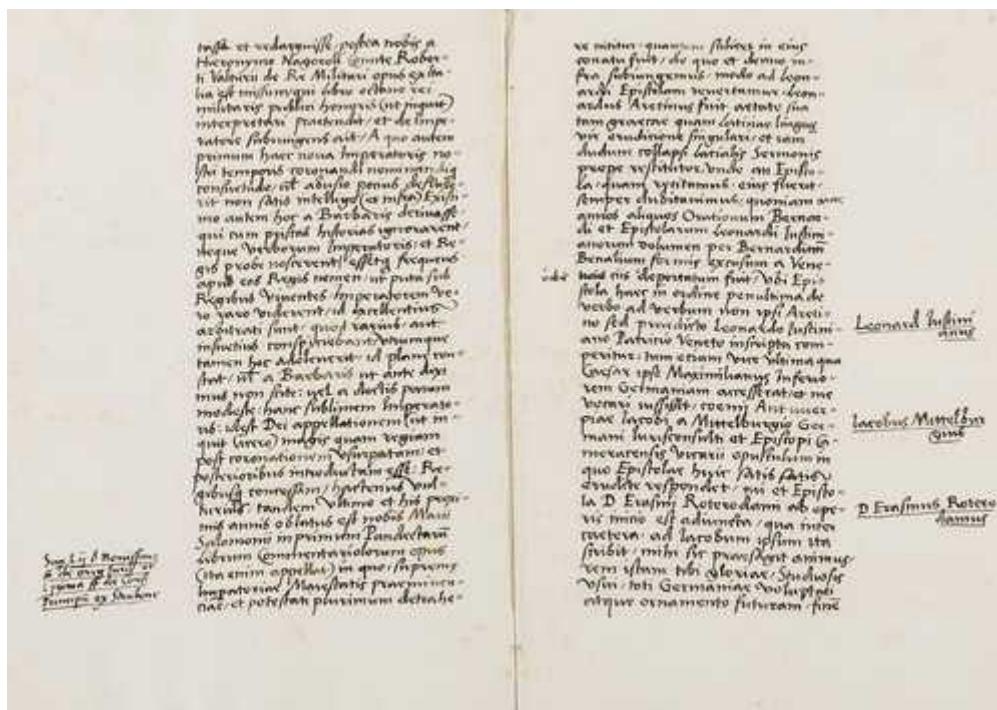 tasse et redarguisse postea nobis a
Hieronymo Nogoroll Comite Rober-
ti Valturii de Re Militari opus exta-
lia est missumqui libro octavo rei
militaris publici honoris (ut inquit)
interpretari praetendit et de Impe-
ratore subiungens ait A quo autem
primum haec nova Imperatoris no-
stri temporis coronandi nominandiq
consuetudo vel abusio potius
rit non satis intelligo (et infra) Existi-
mo autem hoc a Barbaris
qui cum priscas historias ignorarent
neque verborum Imperatoris et Re-
gis probe noscerent frequens
apud eos Regis nomen ut puta sub
Regibus viventes Imperatorem ve-
ro raro viderent id excellentius
arbitrati sunt quod rarius aut
insuetius conspiciebant utrumque
tamen hoc adoleverit id plane con-
stat a Barbaris ut ante dixi
mus non scite vel a doctis parum
modeste hanc sublimem Imperato-
ris idest Dei appellationem (ut in-
quit Cicero) magis quam regiam
post coronationem usurpatam et
posterioribus introductam esse Re-
gibusq concessam hactenus Vul-
turius tandem ultimo et his proxi-
mis annis oblatus est nobis Marii
Salomonii in primum Pandectarum
librum Commentariolorum opus
(ita enim appellat) in quo supremae
Imperatoriae Maiestatis praeminen-
ciae et potestati plurimum detrahe-
re nititur quantum scilicet in eius
conatu fuit de quo et denuo in-
fra subiungemus modo ad Leon-
ardi Epistolam revertamur Leon-
ardus Aretinus fuit aetate sua
tam graecae quam Latinae linguae
vir eruditione singulari et iam
dudum collapsi latialis Sermonis
prope restitutor unde an Episto-
la quam recitamus eius fuerit
semper dubitavimus quoniam ante
annos aliquos Orationum Bernar-
di et Epistolarum Leonardi Iustini-
anorum volumen per Bernardinum
Benalium formis excusum a Vene-
tiis deportatum fuit Ubi Epi-
stola haec in ordine penultima de
verbo ad verbum non ipsi Areti-
no sed praedicto Leonardo Iustini-
ano Patricio Veneto inscripta com-
peritur tum etiam vice ultima qua
Caesar ipse Maximilianus Inferio-
rem Germaniam accesserat et me
vocari iussisset coemi Antwer-
piae Iacobi a Mittelburgio Ger-
mani Iurisconsulti et Episcopi Ca-
meracensis Vicarii opusculum in
quo Epistolae huic satis
erudite respondet cui et Episto-
la D Erasmi Roterodami ab ope-
ris initio est adiuncta qua inter
caetera ad Iacobum ipsum ita
scribit mihi sic praesagit animus
rem istam tibi gloriae Studiosis
usui toti Germaniae voluptati
atque ornamento futuram
Leonard Iustini
anus
Iacobus Mittelbur
gius
D Erasmus Rotero
damus